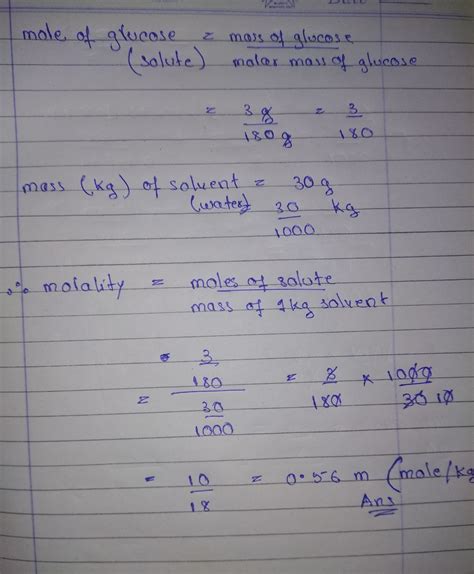 mole of glucose = mass of glucose
(solute) molar mass of glucose
= 3g = 3
180g 180
mass (kg) of solvent = 30g
(water) 30 kg
1000
∴ molality = moles of solute
mass of 1kg solvent
3
180 = 3 × 1000
= 30 180 30 10
1000
= 10 = 0.56 m (mole/kg
18 Ans